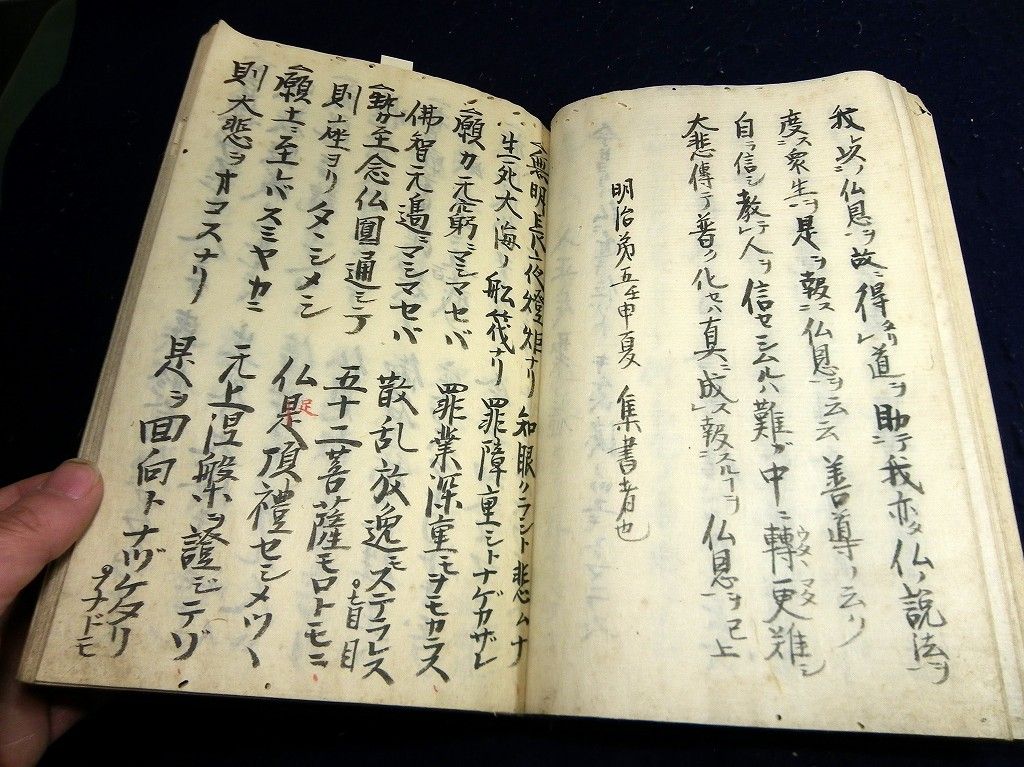 我
仏恩ヲ故ニ得道ヲ助テ我 仏ノ説法ヲ
度ス衆生ヲ是ヲ報ス仏恩ヲ云云 善導ノ云ク
自ラ信シ教テ人ヲ信セシムルハ難ガ中ニ轉更難シ
ウタヽマタ
大悲傳テ普ク化セハ真ニ成ス報スル 仏恩ヲ已上
明治第五壬申夏 集書者也
無明長夜ノ燈炬ナリ 知眼クラシト悲ムナ
生死大海ノ舩筏ナリ 罪障重シトナゲカザレ
願力无窮ニマシマセバ 罪業深重モヲモカラス
佛智无邉ニマシマセバ 散乱放逸モステラレス
至念仏圓通シテ 五十二菩薩モロトモニ
則 座ヨリタヽシメシ 仏足頂禮セシメツヽ
願土ニ至レバスミヤカニ 无上涅槃ヲ證シテゾ
則大悲ヲオコスナリ 是ヲ回向トナヅケタリ